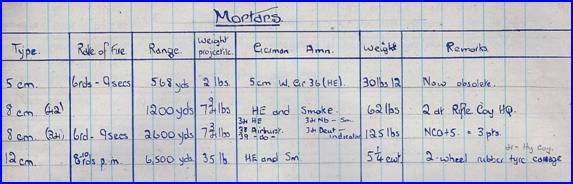 Mortars.
Type. Rate of Fire Range. Weight projectile. German Amn. Weight Remarks
5 cm. 6rds - 9secs 568 yds 2 lbs. 5cm W. Gr 36 (HE). 30lbs 12 Now obsolete.
8 cm. 1200 yds 7¾ lbs HE and Smoke. 62 lbs 2 at Rifle Coy HQ.
8 cm. (34) 6rd - 9secs 2600 yds 7¾ lbs 34 HE 34 Nb - Sm. 125 lbs NCO+5 = 3 pts.
38 Airburst. 34 Deut - indicator
39 - do -
12 cm. 8-10 rds p.m. 6,500 yds 35 lb HE and Sm 5¼ cwt 2-wheel rubber tyre carriage
at - Hy Coy.